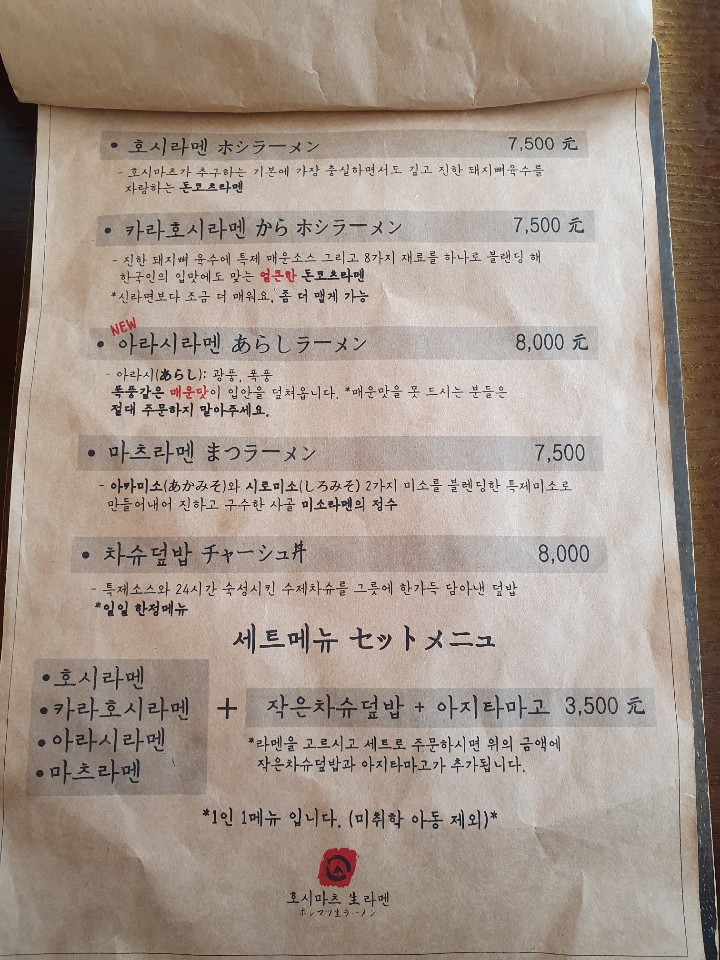 • 호시라멘 ホシラーメン 7,500 元
- 호시마츠가 추구하는 기본에 가장 충실하면서도 깊고 진한 돼지뼈육수를
자랑하는 돈코츠라멘
• 카라호시라멘 から ホシラーメン 7,500 元
- 진한 돼지뼈 육수에 특제 매운소스 그리고 8가지 재료를 하나로 블랜딩 해
한국인의 입맛에도 맞는 얼큰한 돈코츠라멘
*신라면보다 조금 더 매워요. 좀 더 맵게 가능
NEW
• 아라시라멘 あらしラーメン 8,000 元
- 아라시(あらし): 광풍, 폭풍
폭풍같은 매운맛이 입안을 덮쳐옵니다. *매운맛을 못 드시는 분들은
절대 주문하지 말아주세요.
• 마츠라멘 まつラーメン 7,500
- 아카미소(あかみそ)와 시로미소(しろみそ) 2가지 미소를 블렌딩한 특제미소로
만들어내어 진하고 구수한 사골 미소라멘의 정수
• 차슈덮밥 チャーシュ丼 8,000
- 특제소스와 24시간 숙성시킨 수제차슈를 그릇에 한가득 담아낸 덮밥
*일일 한정메뉴
세트메뉴 セットメニュ
• 호시라멘
• 카라호시라멘
• 아라시라멘
• 마츠라멘
+ 작은차슈덮밥 + 아지타마고 3,500 元
*라멘을 고르시고 세트로 주문하시면 위의 금액에
작은차슈덮밥과 아지타마고가 추가됩니다.
*1인 1메뉴 입니다. (미취학 아동 제외)*
호시마츠 生라멘
ホシマツ生ラーメン